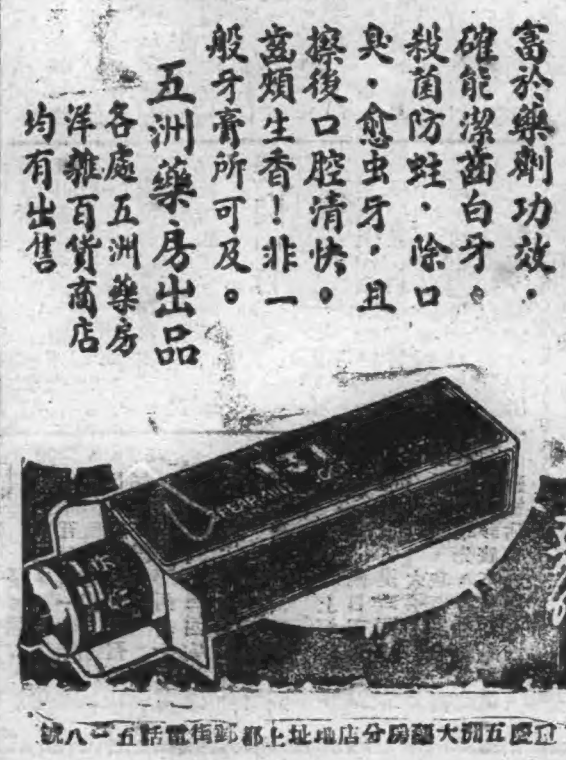 富於藥劑功效．
確能潔齒白牙。
殺菌防蛀．除口
臭．愈虫牙．且
擦後口腔清快。
齒頰生香！非一
般牙膏所可及。
五洲藥房出品
各處五洲藥房
洋雜百貨商店
均有出售
131
重慶五洲大藥房分店地址上都郵街電話五一八號